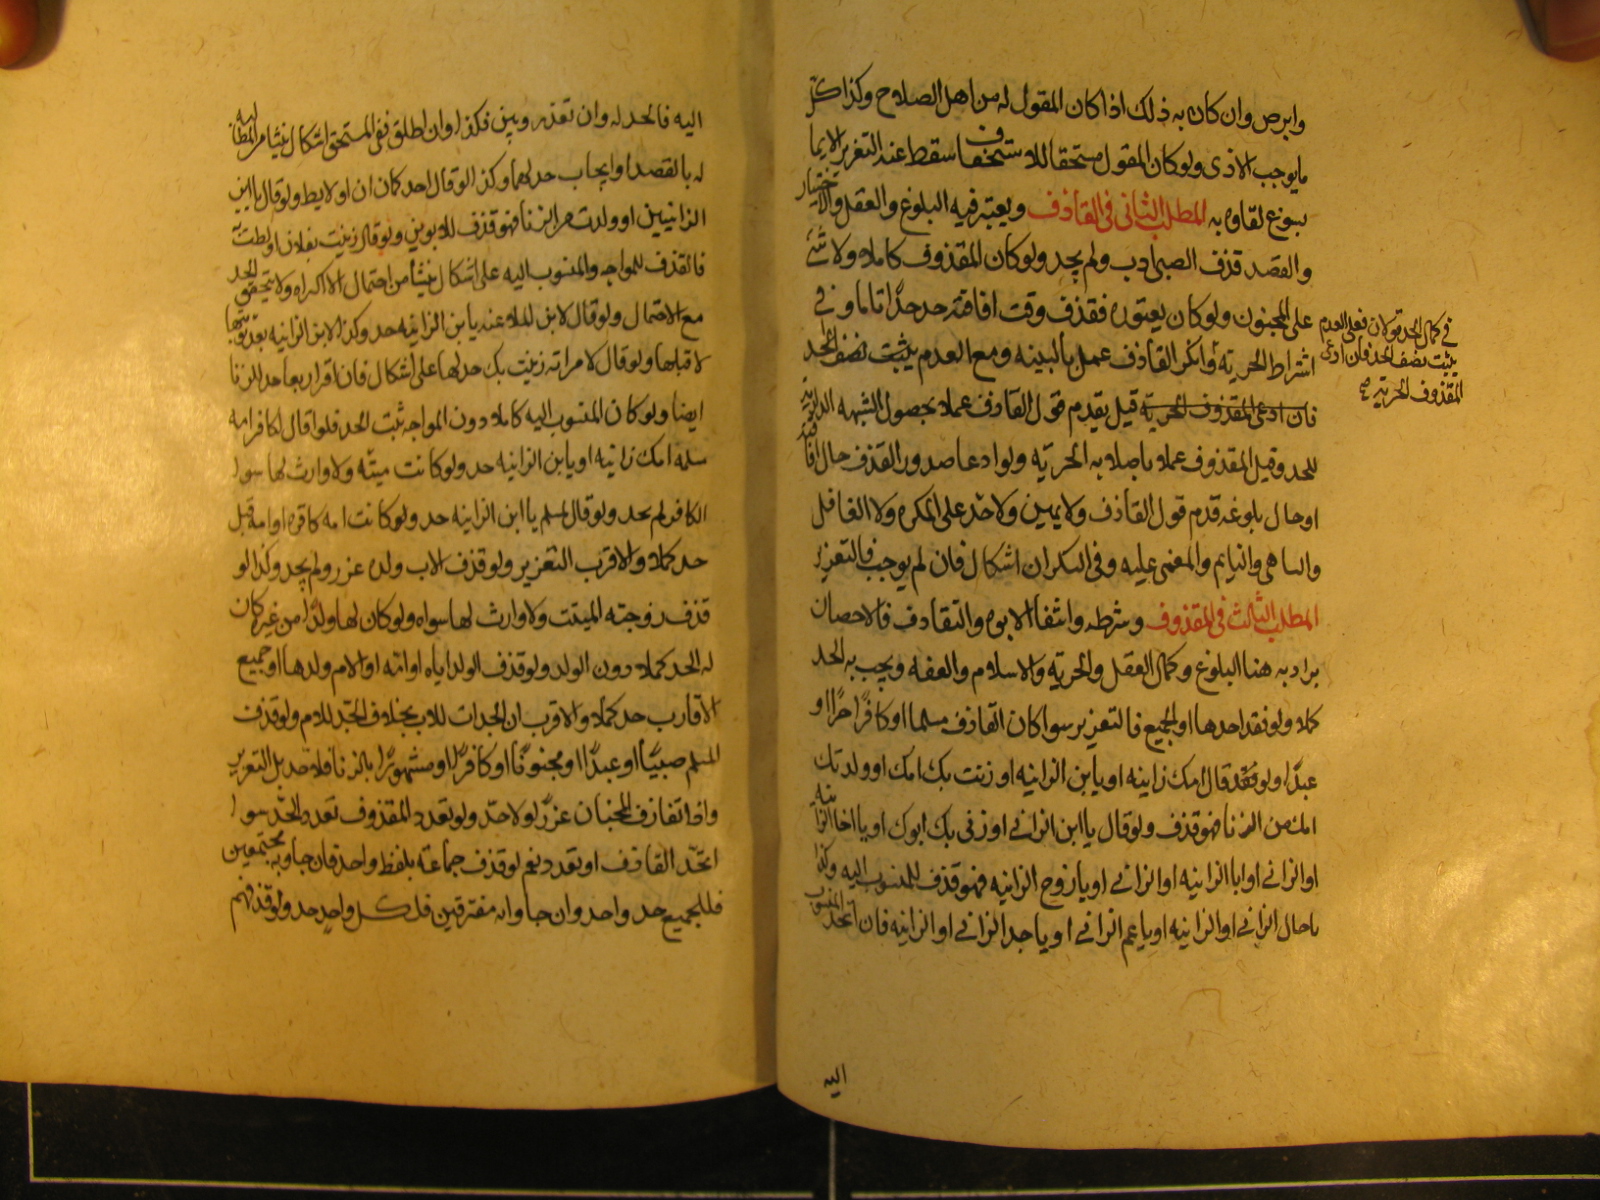 وابرص وان كان به ذلك اذا كان المقول له من اهل الصلاح وكذا كل
ما يوجب الاذى ولو كان المقول مستحقا للاستخفاف سقط عنه التعزير الا بما
يسوغ لقاؤه به المطلب الثانى فى القاذف ويعتبر فيه البلوغ والعقل والاختيار
والقصد فلو قذف الصبى ادب ولم يحد ولو كان المقذوف كاملا ولا شئ
على المجنون ولو كان يعتوره فقذف وقت افاقته حد حدا تاما وفى
اشتراط الحرية ولو انكر القاذف عمل بالبينه ومع العدم يثبت نصف الحد
فان ادعى المقذوف الحريه قيل يقدم قول القاذف عملا بحصول الشبهه الدارئة
للحد وقيل المقذوف عملا باصلا به الحريه ولو ادعا صدور القذف حال افاقته
او حال بلوغه قدم قول القاذف ولا يمين ولا حد على المكره ولا الغافل
والساهى والنايم والمغمى عليه وفى السكران اشكال فان لم يوجب فالتعزير
المطلب الثالث فى المقذوف وشرطه وانتفا الابوه والتقاذف فالاحصان
يراد به هنا البلوغ وكمال العقل والحريه والاسلام والعفه ويجب به الحد
كملا ولو فقد احدها او الجميع فالتعزير سوا كان القاذف مسلما او كافرا حرا او
عبدا ولو قال امك زانيه او يا ابن الزانيه او زنت بك امك او ولدتك
امك من الزنا فهو قذف ولو قال يا ابن الزانى او زنى بك ابوك او يا اخا الزانيه
او الزانى او ابا الزانيه او الزانى او يا زوج الزانيه فهو قذف للمنسوب اليه وكذا
يا خال الزانى او الزانيه او يا عم الزانى او يا جد الزانى او الزانيه فان اتحد المنسوب
اليه
فى كمال الحد قولان فعلى العدم
يثبت نصف الحد فان ادعى
المقذوف الحرية
اليه فالحد له وان تعدد وبين فكذا وان اطلق ففى المستحق اشكال ينشا من المطالبه
له بالقصد او ايجاب حد لهما وكذا لو قال احدكما زان او لايط ولو قال يا ابن
الزانيين او ولدت من الزنا فهو قذف للابوين ولو قال زنيت بفلان او لطت
فالقذف للمواجه والمنسوب اليه على اشكال ينشأ من احتمال الاكراه ولا يتحقق الحد
مع الاحتمال ولو قال لابن الملاعنه يا بن الزانيه حد وكذا لابن الزانيه بعد توبتها
لا قبلها ولو قال لامراته زنيت بك حد لها على اشكال فان اقر اربعا حد للزنا
ايضا ولو كان المنسوب اليه كاملا دون المواجه ثبت الحد فلو قال لكافر امه
مسلمه امك زانيه او يا بن الزانيه حد ولو كانت ميته ولا وارث لها سوا
الكافر لم يحد ولو قال لمسلم يا ابن الزانيه حد ولو كانت امه كافره او امة قيل
حد كملا والاقرب التعزير ولو قذف الاب ولده عزر ولم يحد وكذا لو
قذف زوجته الميتت ولا وارث لها سواه ولو كان لها ولدا من غيره كان
له الحد كملا دون الولد ولو قذف الولد اياه او امه او الام ولدها او جميع
الاقارب حد كملا والاقرب ان الجدات للاب بخلاف الجد للام ولو قذف
المسلم صبيا او عبدا او مجنونا او كافرا او مشهورا بالزنا فلا حد بل التعزير
واذا تقاذف المحصنان عزرا ولا حد ولو تعدد المقذوف تعدد الحد سوا
اتحد القاذف او تعدد نعم لو قذف جماعه بلفظ واحد فان جاؤا به مجتمعين
فللجميع حد واحد وان جاوا به مفترقين فلكل واحد حد ولو قذفهم